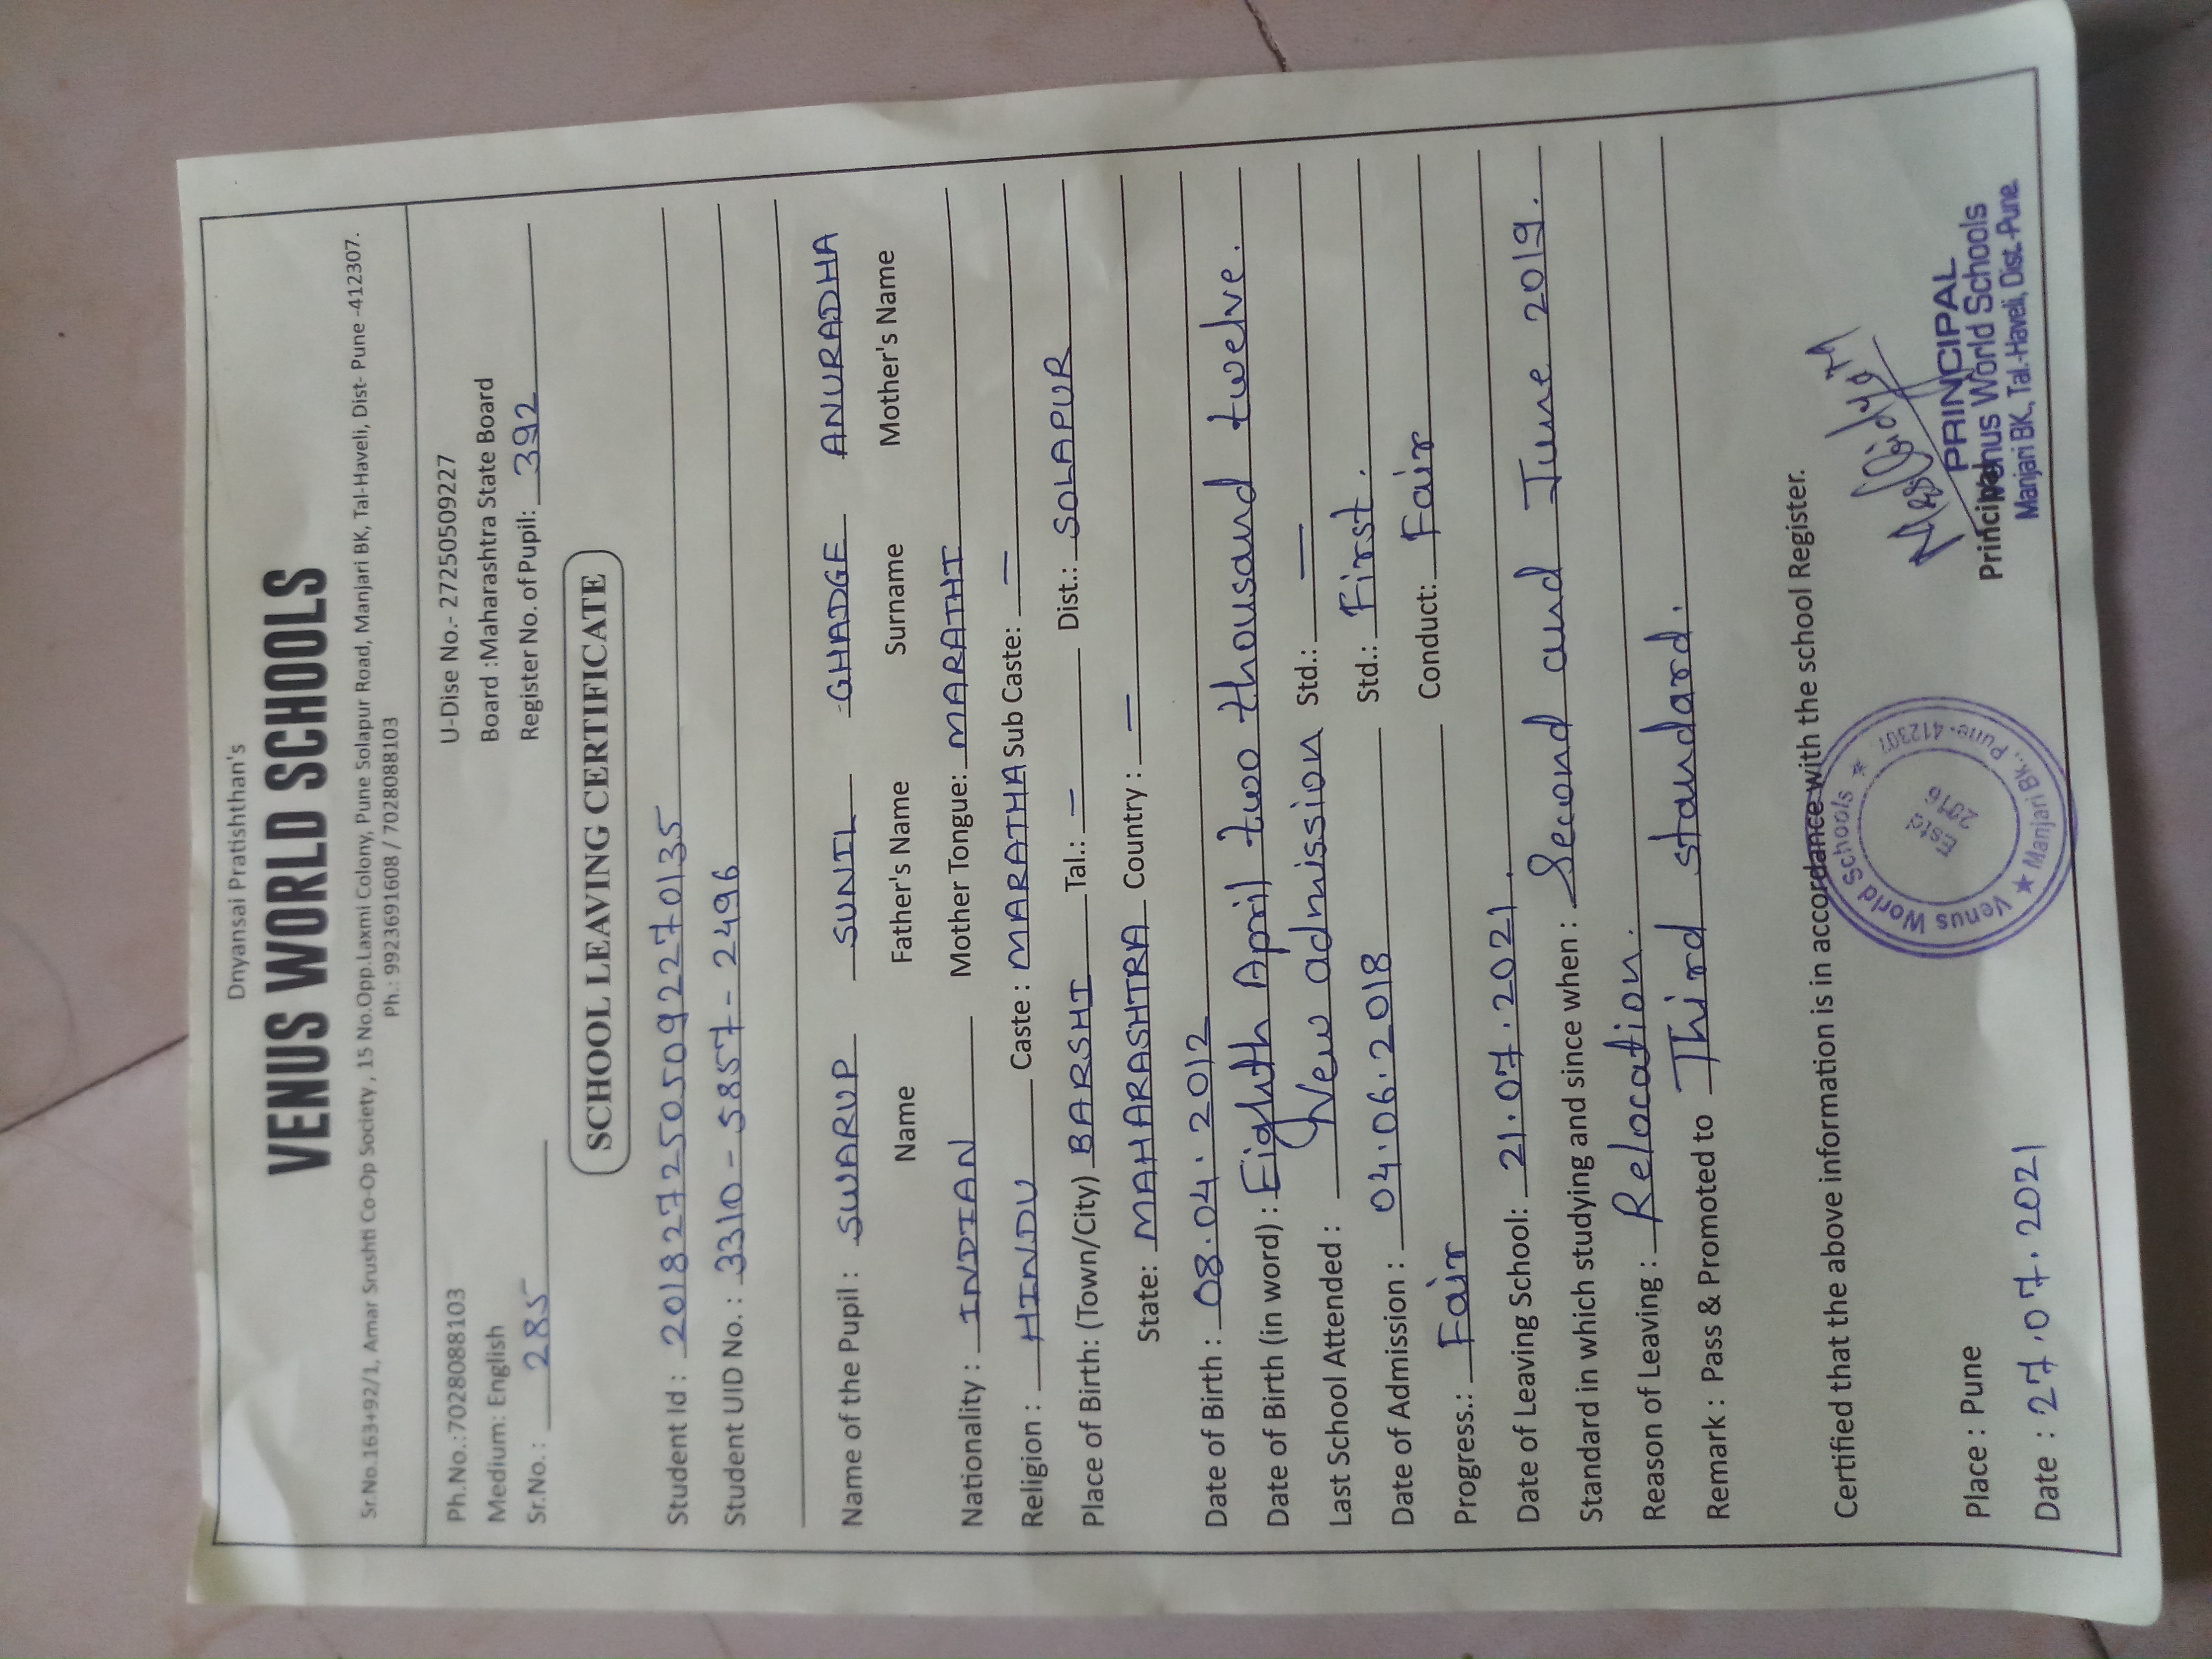 Dnyansai Pratishthan's
VENUS WORLD SCHOOLS
Sr.No.163+92/1, Amar Srushti Co-Op Society, 15 No.Opp.Laxmi Colony, Pune Solapur Road, Manjari BK, Tal-Haveli, Dist- Pune -412307.
Ph.: 9923691608 / 7028088103
Ph.No.:7028088103 U-Dise No.- 27250509227
Medium: English Board :Maharashtra State Board
Sr.No. : 285 Register No. of Pupil: 392
SCHOOL LEAVING CERTIFICATE
Student Id : 2018272505092270135
Student UID No. : 3310-5857-2496
Name of the Pupil : SWARUP SUNIL GHADGE ANURADHA
Name Father's Name Surname Mother's Name
Nationality : INDIAN Mother Tongue: MARATHI
Religion : HINDU Caste : MARATHA Sub Caste: —
Place of Birth: (Town/City) BARSHI Tal.: — Dist.: SOLAPUR
State: MAHARASHTRA Country : —
Date of Birth : 08.04.2012
Date of Birth (in word) : Eighth April two thousand twelve.
Last School Attended : New admission Std.: —
Date of Admission : 04.06.2018 Std.: First.
Progress.: Fair Conduct: Fair
Date of Leaving School: 21.07.2021.
Standard in which studying and since when : Second and June 2019.
Reason of Leaving : Relocation.
Remark : Pass & Promoted to Third standard.
Certified that the above information is in accordance with the school Register.
Venus World Schools ★ Manjari Bk., Pune-412307 ★
Estd
2016
Place : Pune
Date : 27.07.2021
Principal
PRINCIPAL
Venus World Schools
Manjari BK., Tal.-Haveli, Dist.-Pune.